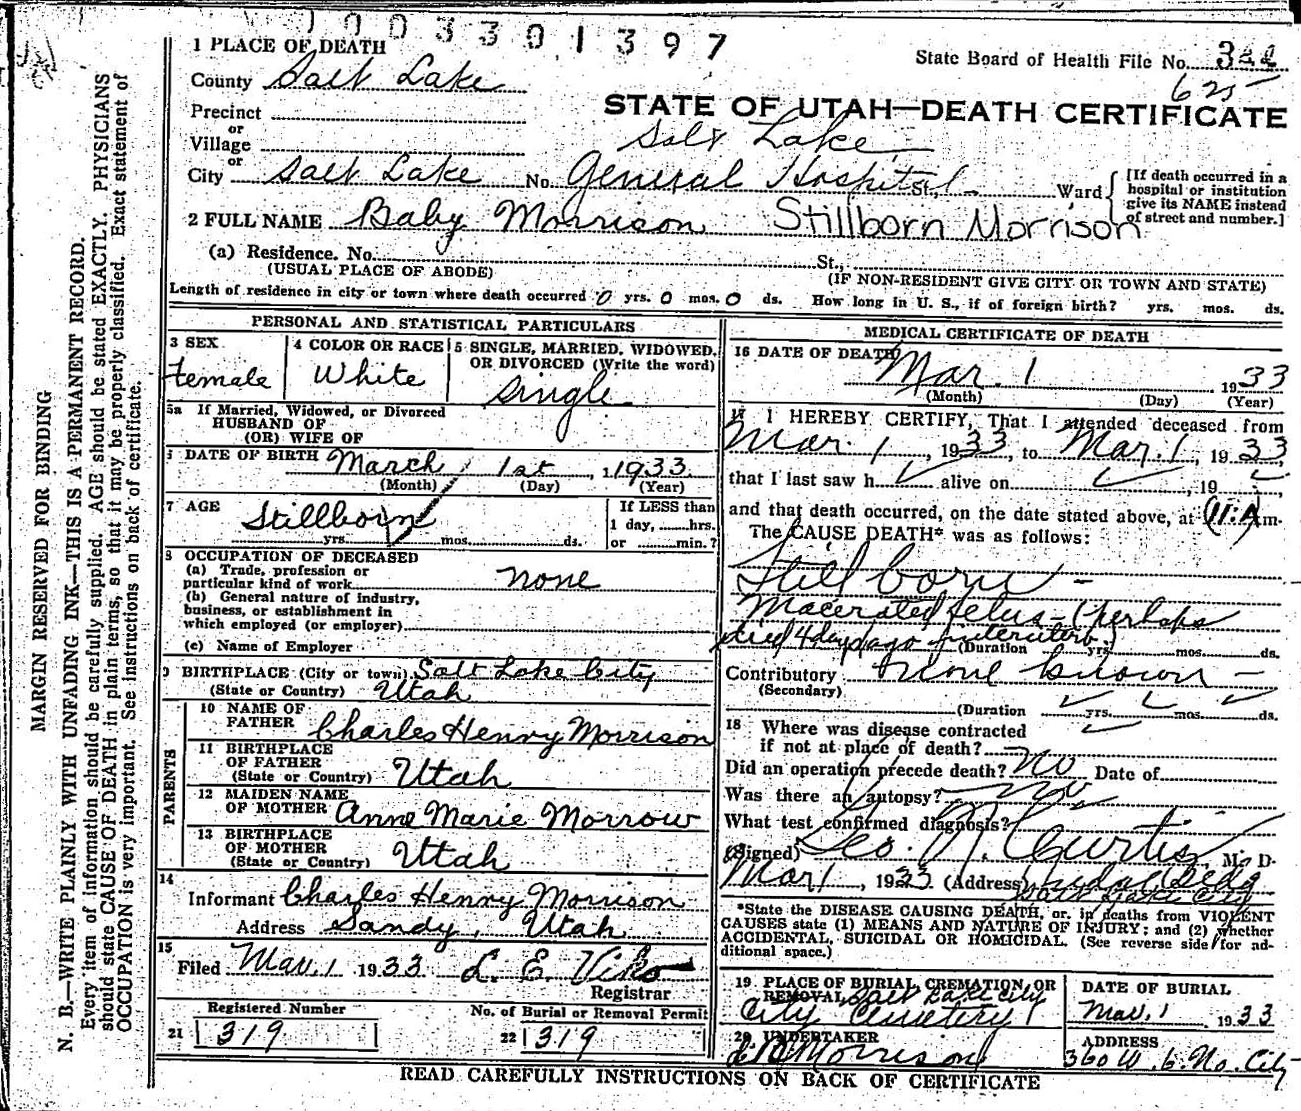 1003301397
State Board of Health File No. 322
625
1 PLACE OF DEATH
County Salt Lake
STATE OF UTAH—DEATH CERTIFICATE
Precinct
or
Village
or
Salt Lake
City Salt Lake No. General Hospital St., Ward
[If death occurred in a
hospital or institution
give its NAME instead
of street and number.]
2 FULL NAME Baby Morrison Stillborn Morrison
(a) Residence. No. St.,
(USUAL PLACE OF ABODE) (IF NON-RESIDENT GIVE CITY OR TOWN AND STATE)
Length of residence in city or town where death occurred 0 yrs. 0 mos. 0 ds. How long in U. S., if of foreign birth? yrs. mos. ds.
PERSONAL AND STATISTICAL PARTICULARS
3 SEX
Female
4 COLOR OR RACE
White
5 SINGLE, MARRIED, WIDOWED,
OR DIVORCED (Write the word)
Single
5a If Married, Widowed, or Divorced
HUSBAND OF
(OR) WIFE OF
6 DATE OF BIRTH March 1st, 1933
(Month) (Day) (Year)
7 AGE Stillborn
yrs. mos. ds.
If LESS than
1 day, hrs.
or min.?
8 OCCUPATION OF DECEASED
(a) Trade, profession or
particular kind of work none
(b) General nature of industry,
business, or establishment in
which employed (or employer)
(c) Name of Employer
9 BIRTHPLACE (City or town) Salt Lake City
(State or Country) Utah
PARENTS
10 NAME OF
FATHER Charles Henry Morrison
11 BIRTHPLACE
OF FATHER
(State or Country) Utah
12 MAIDEN NAME
OF MOTHER Anne Marie Morrow
13 BIRTHPLACE
OF MOTHER
(State or Country) Utah
14
Informant Charles Henry Morrison
Address Sandy, Utah
15
Filed Mar. 1 1933 L. E. Viko
Registrar
Registered Number
21 319
No. of Burial or Removal Permit
22 319
MEDICAL CERTIFICATE OF DEATH
16 DATE OF DEATH
Mar. 1 1933
(Month) (Day) (Year)
17 I HEREBY CERTIFY, That I attended deceased from
Mar. 1, 1933, to Mar. 1, 1933,
that I last saw h alive on , 19 ,
and that death occurred, on the date stated above, at 11:A m.
The CAUSE DEATH* was as follows:
Stillborn -
Macerated fetus - (perhaps
died 4 days ago interutero)
(Duration yrs. mos. ds.
Contributory none known -
(Secondary)
(Duration yrs. mos. ds.
18 Where was disease contracted
if not at place of death?
Did an operation precede death? no Date of
Was there an autopsy? no
What test confirmed diagnosis?
(Signed) Geo. N. Curtis, M. D.
Mar 1, 1933 (Address Bldg
Salt Lake City
*State the DISEASE CAUSING DEATH, or, in deaths from VIOLENT
CAUSES state (1) MEANS AND NATURE OF INJURY; and (2) whether
ACCIDENTAL, SUICIDAL OR HOMICIDAL. (See reverse side for ad-
ditional space.)
19 PLACE OF BURIAL, CREMATION, OR
REMOVAL Salt Lake City
City Cemetery
DATE OF BURIAL
Mar. 1 1933
20 UNDERTAKER
Morrison
ADDRESS
360 W. 6. No. City
READ CAREFULLY INSTRUCTIONS ON BACK OF CERTIFICATE
MARGIN RESERVED FOR BINDING
N. B.—WRITE PLAINLY WITH UNFADING INK—THIS IS A PERMANENT RECORD.
Every item of information should be carefully supplied. AGE should be stated EXACTLY. PHYSICIANS
should state CAUSE OF DEATH in plain terms, so that it may be properly classified. Exact statement of
OCCUPATION is very important. See instructions on back of certificate.